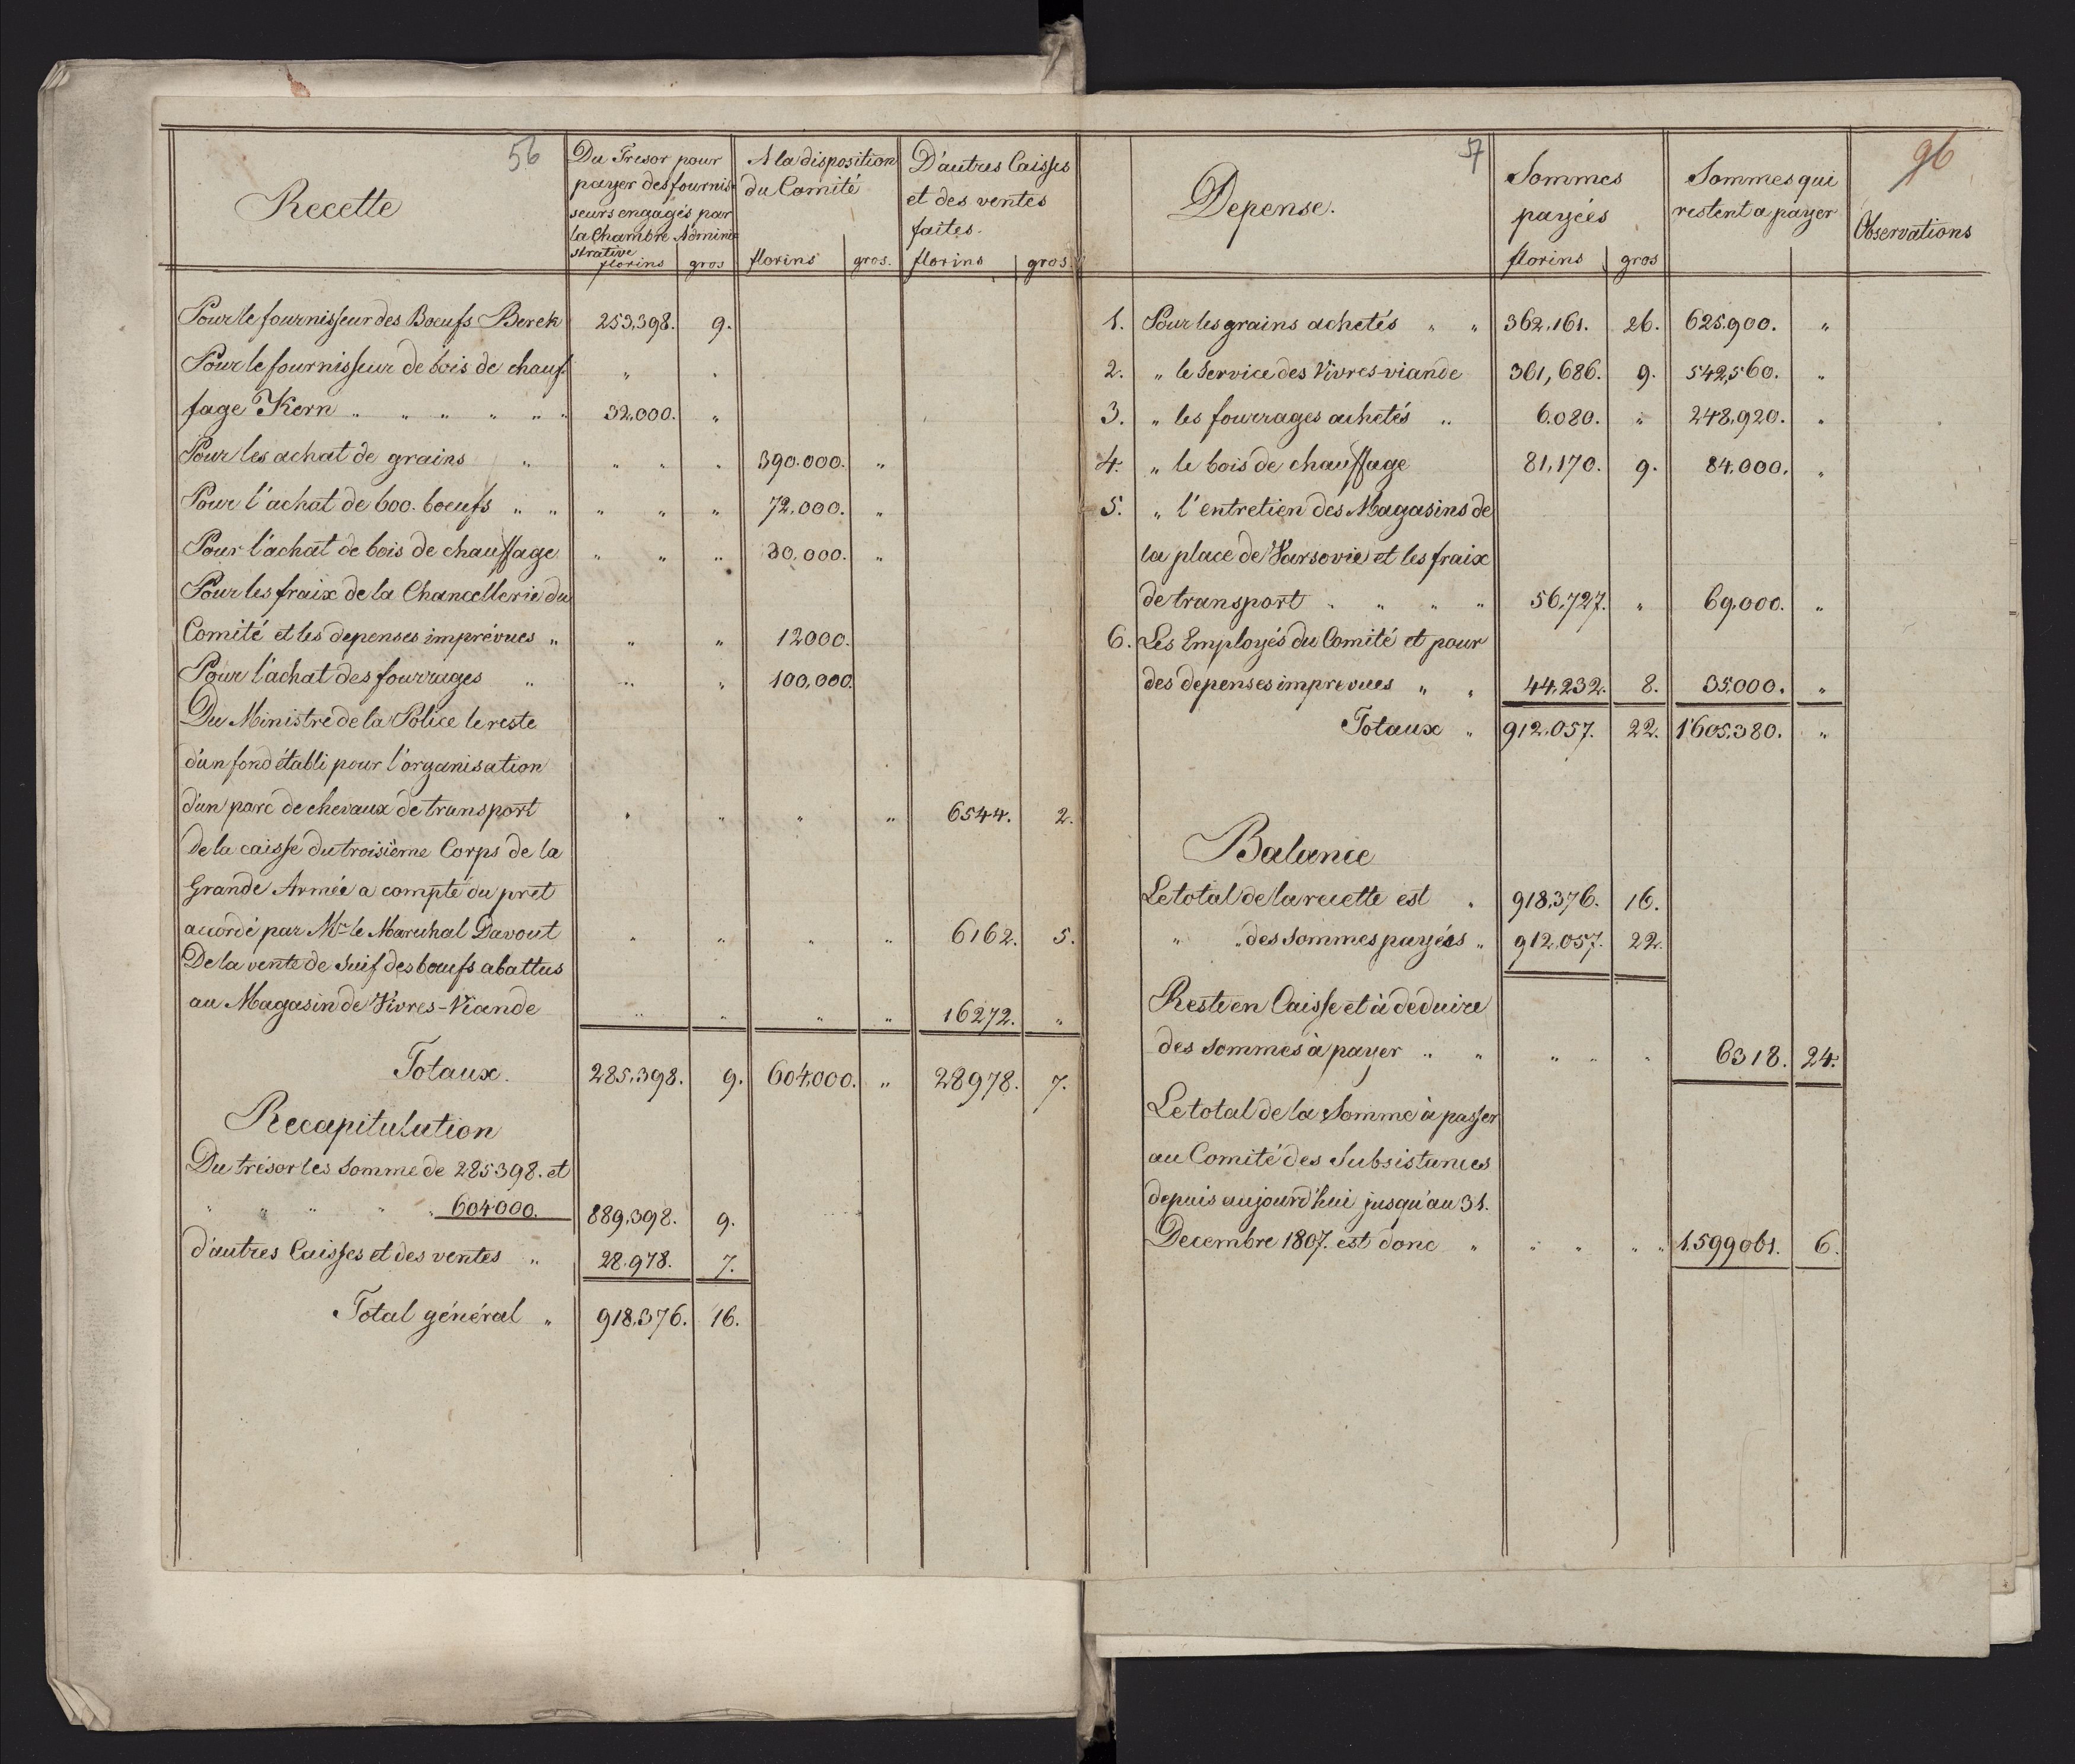 56
Recette
Du Tresor pour
payer des fournis-
seurs engagés par
la Chambre Admini-
strative
florins gros
A la disposition
du Comité
florins gros.
D'autres Caisses
et des ventes
faites.
florins gros.
Pour le fournisseur des Boeufs Berek 253,398. 9.
Pour le fournisseur de bois de chauf- " "
fage Kern " " " " " " 32,000. "
Pour les achat de grains " " " " 390.000. "
Pour l'achat de 600. boeufs " " " " " 72,000. "
Pour l'achat de bois de chauffage " " " 30.000. "
Pour les fraix de la Chancellerie du
Comité et les depenses imprévues " " " 12000.
Pour l'achat des fourrages " " " 100,000.
Du Ministre de la Police le reste
d'un fond établi pour l'organisation
d'un parc de chevaux de transport " " " " 6544. 2.
de la caisse du troisième Corps de la
Grande Armée a compte du pret
accordé par Mr le Marechal Davout " " " " 6162. 5.
De la vente de Suif des boeufs abattus
au Magasin de Vivres-Viande " " " " 16272. "
Totaux. 285,398. 9. 604,000. " 28978. 7.
Recapitulation
Du trésor les somme de 285398. et
" " " " " 604000. 889,398. 9.
d'autres Caisses et des ventes " 28.978. 7.
Total général " 918,376. 16.
57
96
Depense.
Sommes
payées
florins gros
Sommes qui
restent a payer
Observations
1. Pour les grains achetés " " 362,161. 26. 625.900. "
2. " le Service des Vivres-viande 361,686. 9. 542,560. "
3. " les fourrages achetés " 6.080. " 248,920. "
4. " le bois de chauffage 81,170. 9. 84,000. "
5. " l'entretien des Magasins de
la place de Varsovie et les fraix
de transport " " " " 56,727. " 69,000. "
6. Les Employés du Comité et pour
des depenses imprevues " " 44,232. 8. 35,000. "
Totaux " 912,057. 22. 1'605,380. "
Balance
Le total de la recette est " 918,376. 16.
" " des sommes payées " 912,057. 22.
Reste en Caisse et à deduire
des sommes à payer " " " " " 6318. 24.
Le total de la Somme à passer
au Comité des Subsistances
depuis aujourd'hui jusqu'au 31.
Decembre 1807. est donc " " " " " 1.599061. 6.